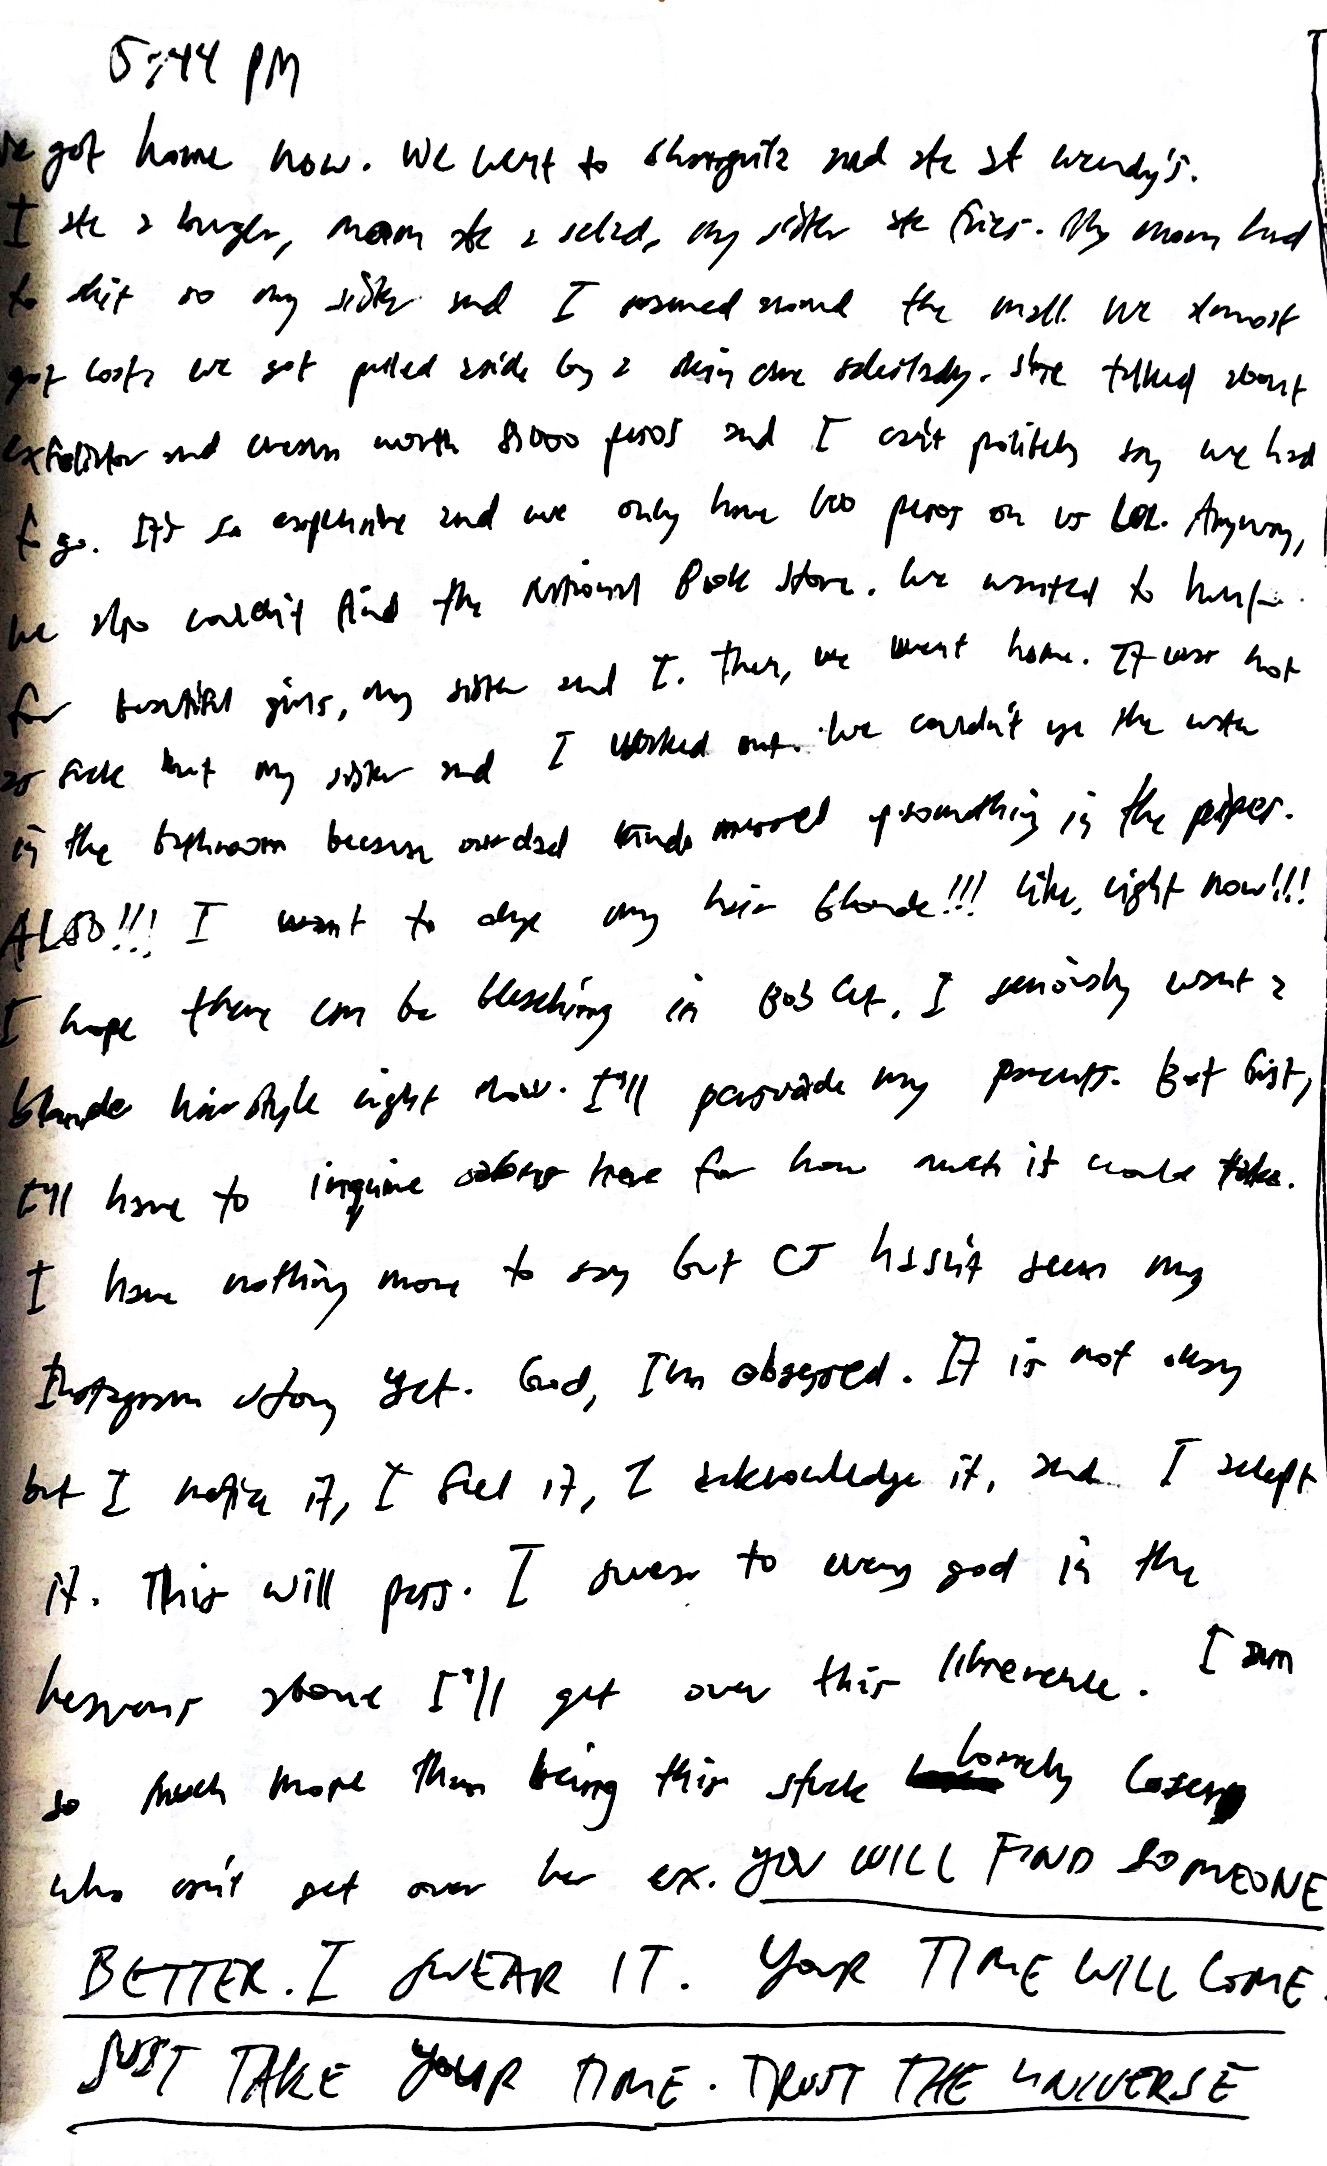 5:44 PM
we got home now. We went to Shangrila and ate at wendy's.
I ate a burger, mom ate a salad, my sister ate fries. My mom had
to shit so my sister and I roamed around the mall. We almost
got lost, we got pulled aside by a skin care saleslady. She talked about
exfoliator and cream worth 8000 pesos and I can't politely say we had
to go. It's so expensive and we only have 100 pesos on us LOL. Anyway,
we also couldn't find the National Book Store. We wanted to hunt
for beautiful girls, my sister and I. Then, we went home. It was hot
as fuck but my sister and I worked out. We couldn't use the water
in the bathroom because our dad kinda messed up something in the pipes.
ALSO!!! I want to dye my hair blonde!!! like, right now!!!
I hope there can be bleaching in Bob Cut. I seriously want a
blonde hairstyle right now. I'll persuade my parents. But first,
I'll have to inquire here for how much it would take.
I have nothing more to say but CJ hasn't seen my
Instagram story yet. God, I'm obsessed. It is not okay
but I notice it, I feel it, I acknowledge it, and I accept
it. This will pass. I swear to every god in the
heavens above I'll get over this limerence. I am
so much more than being this stuck lonely loser
who can't get over her ex. YOU WILL FIND SOMEONE
BETTER. I SWEAR IT. YOUR TIME WILL COME.
JUST TAKE YOUR TIME. TRUST THE UNIVERSE